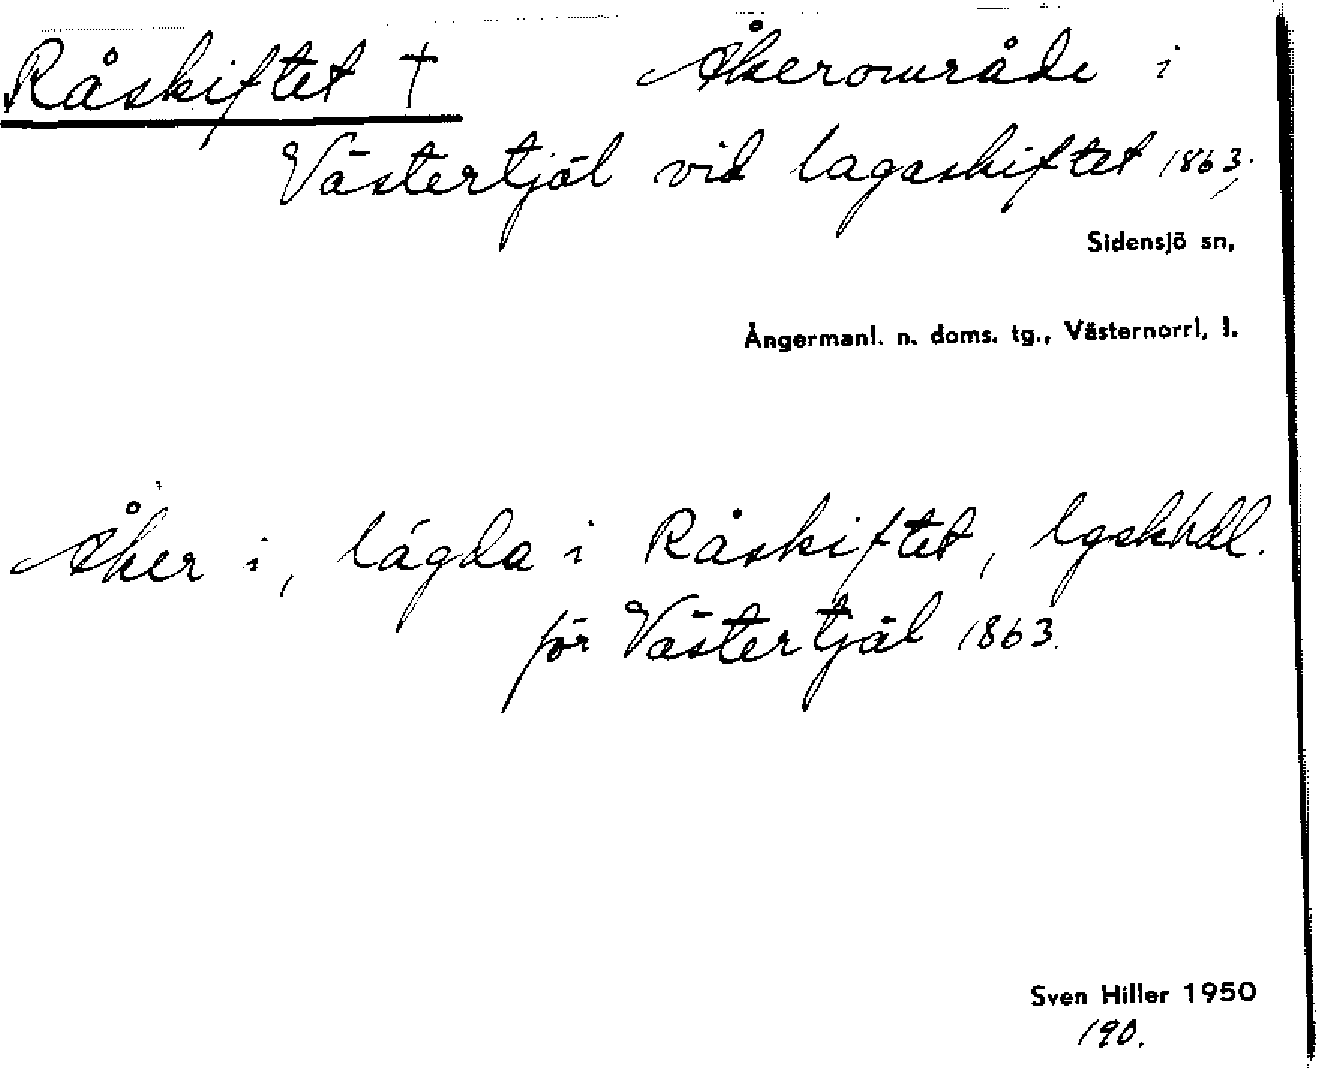 Råskiftet † Åkerområde i
Västertjäl vid lagaskiftet 1863;
Sidensjö sn,
Ångermanl. n. doms. tg., Västernorrl. l.
Åker i, lägda i Råskiftet, lgskhdl.
för Västertjäl 1863.
Sven Hiller 1950
190.